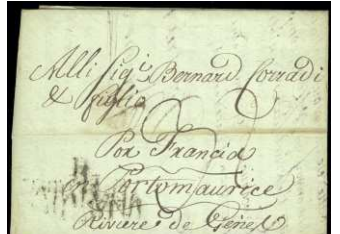 Alli Sig.i Bernard. Corradi
& figlio
Por Francia
en Portomaurice
Riviere de Genes